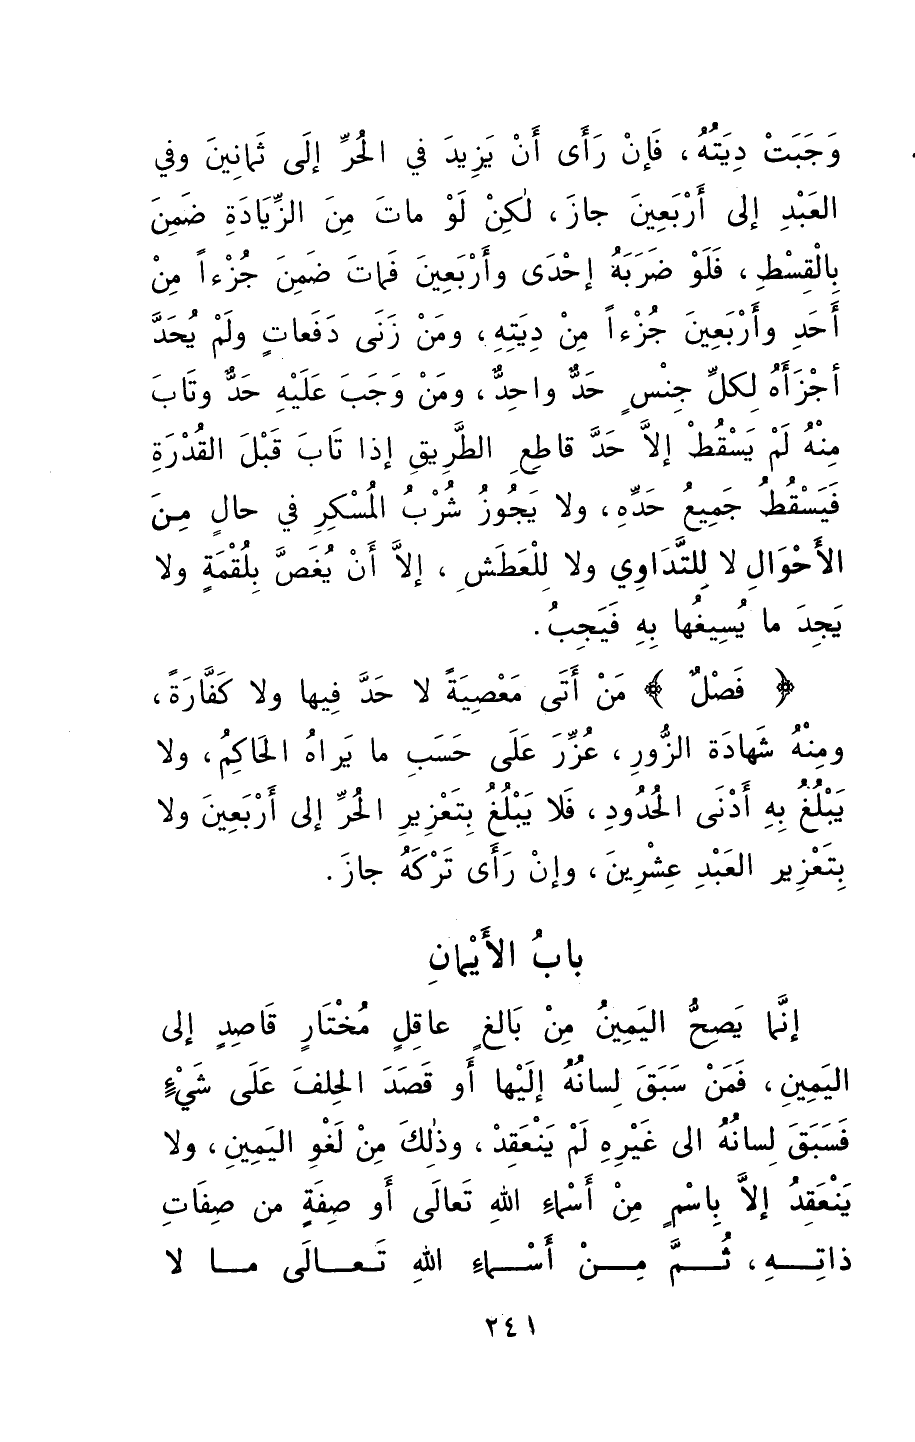 وَجَبَتْ دِيَتُهُ، فَإنْ رَأَى أَنْ يَزِيدَ في الحُرِّ إلَى ثَمانِينَ وفي
العَبْدِ إلى أَرْبَعِينَ جازَ، لٰكِنْ لَوْ ماتَ مِنَ الزِّيَادَةِ ضَمِنَ
بِالْقِسْطِ، فَلَوْ ضَرَبَهُ إحْدَى وأَرْبَعِينَ فَماتَ ضَمِنَ جُزْءاً مِنْ
أَحَدِ وأَرْبَعِينَ جُزْءاً مِنْ دِيَتِهِ، ومَنْ زَنَى دَفَعاتٍ ولَمْ يُحَدَّ
أجْزَأَهُ لِكلِّ جِنْسٍ حَدٌّ واحِدٌ، ومَنْ وَجَبَ عَلَيْهِ حَدٌّ وتَابَ
مِنْهُ لَمْ يَسْقُطْ إلاَّ حَدَّ قاطِعِ الطَّرِيقِ إذا تَابَ قَبْلَ القُدْرَةِ
فَيَسْقُطُ جَمِيعُ حَدِّهِ، ولا يَجُوزُ شُرْبُ المُسْكِرِ في حالٍ مِنَ
الأَحْوَالِ لا لِلتَّدَاوِي ولا لِلْعَطَشِ، إلاَّ أَنْ يُغَصَّ بِلُقْمَةٍ ولا
يَجِدَ ما يُسِيغُها بِهِ فَيَجِبُ.
﴿ فَصْلٌ ﴾ مَنْ أَتَى مَعْصِيَةً لا حَدَّ فِيها ولا كَفَّارَةً،
ومِنْهُ شَهادَة الزُّورِ، عُزِّرَ عَلَى حَسَبِ ما يَراهُ الحَاكِمُ، ولا
يَبْلُغُ بِهِ أَدْنَى الحُدُودِ، فَلا يَبْلُغُ بِتَعْزِيرِ الحُرِّ إلى أَرْبَعِينَ ولا
بِتَعْزِيرِ العَبْدِ عِشْرِينَ، وإنْ رَأَى تَرْكَهُ جازَ.
بابُ الأَيْمانِ
إنَّما يَصِحُّ اليَمِينُ مِنْ بَالِغٍ عاقِلٍ مُخْتَارٍ قَاصِدٍ إلى
اليَمِينِ، فَمَنْ سَبَقَ لِسانُهُ إلَيْها أَو قَصَدَ الحِلفَ عَلَى شَيْءٍ
فَسَبَقَ لِسانُهُ الى غَيْرِهِ لَمْ يَنْعَقِدْ، وذٰلِكَ مِنْ لَغْوِ اليَمِينِ، ولا
يَنْعَقِدُ إلاَّ بِاسْمٍ مِنْ أَسْماءِ اللهِ تَعالَى أَو صِفَةٍ من صِفَاتِ
ذاتِـهِ، ثُـمَّ مِـنْ أَسْـماءِ اللهِ تَـعـالَى مـا لا
٢٤١